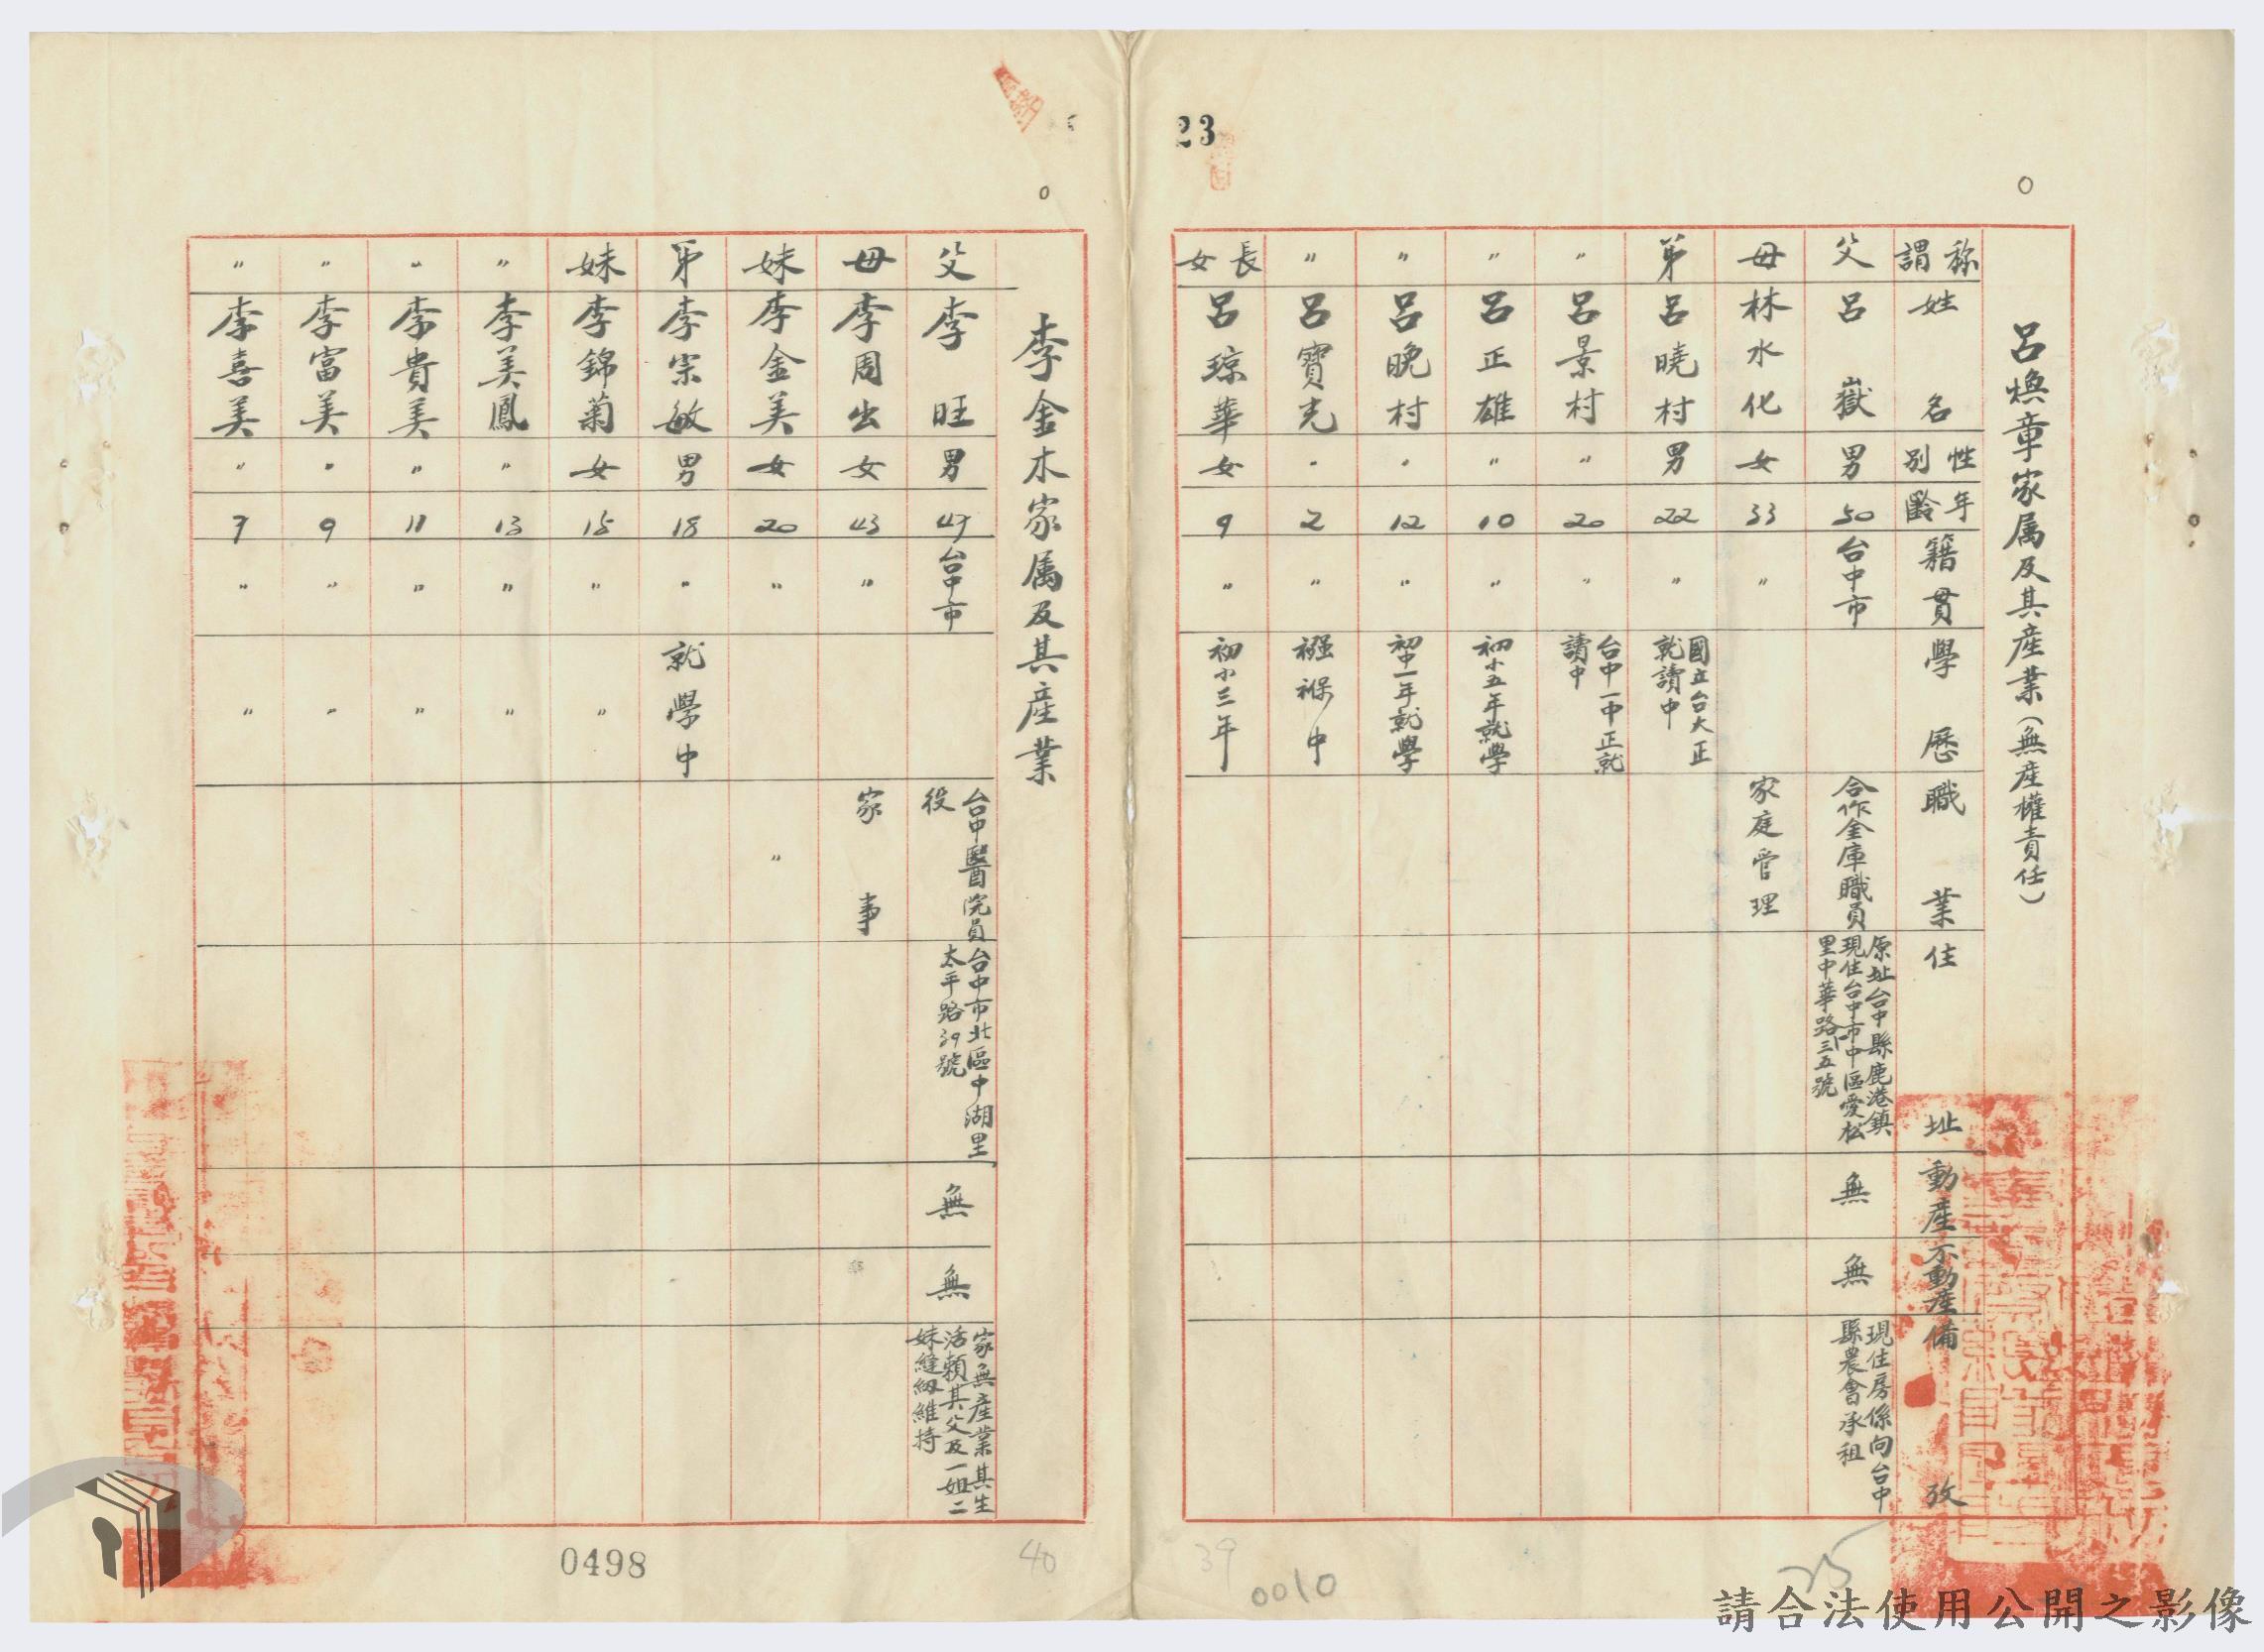 23
呂煥章家属及其產業（無產權責任）
称謂 姓名 性別 年齡 籍貫 學歷 職業 住址 動產 不動產 備攷
父 呂嶽 男 50 台中市 合作金庫職員 原址台中縣鹿港鎮現住台中市中區愛松里中華路三五號 無 無 現住房係向台中縣農會承租
母 林水化 女 33 〃 家庭管理
弟 呂曉村 男 22 〃 國立台大正就讀中
〃 呂景村 〃 20 〃 台中一中正就讀中
〃 呂正雄 〃 10 〃 初小五年就學
〃 呂晚村 〃 12 〃 初中一年就學
〃 呂寶光 〃 2 〃 襁褓中
長女 呂琼華 女 9 〃 初小三年
李金木家属及其產業
父 李旺 男 47 台中市 台中醫院員役 台中市北區中湖里太平路39號 無 無 家無產業其生活賴其父及一姐二妹縫紉維持
母 李周出 女 43 〃 家事
妹 李金美 女 20 〃 〃
弟 李宗敏 男 18 〃 就學中
妹 李錦菊 女 15 〃 〃
〃 李美鳳 〃 13 〃 〃
〃 李貴美 〃 11 〃 〃
〃 李富美 〃 9 〃 〃
〃 李喜美 〃 7 〃 〃
0498
40
39
0010
25
請合法使用公開之影像